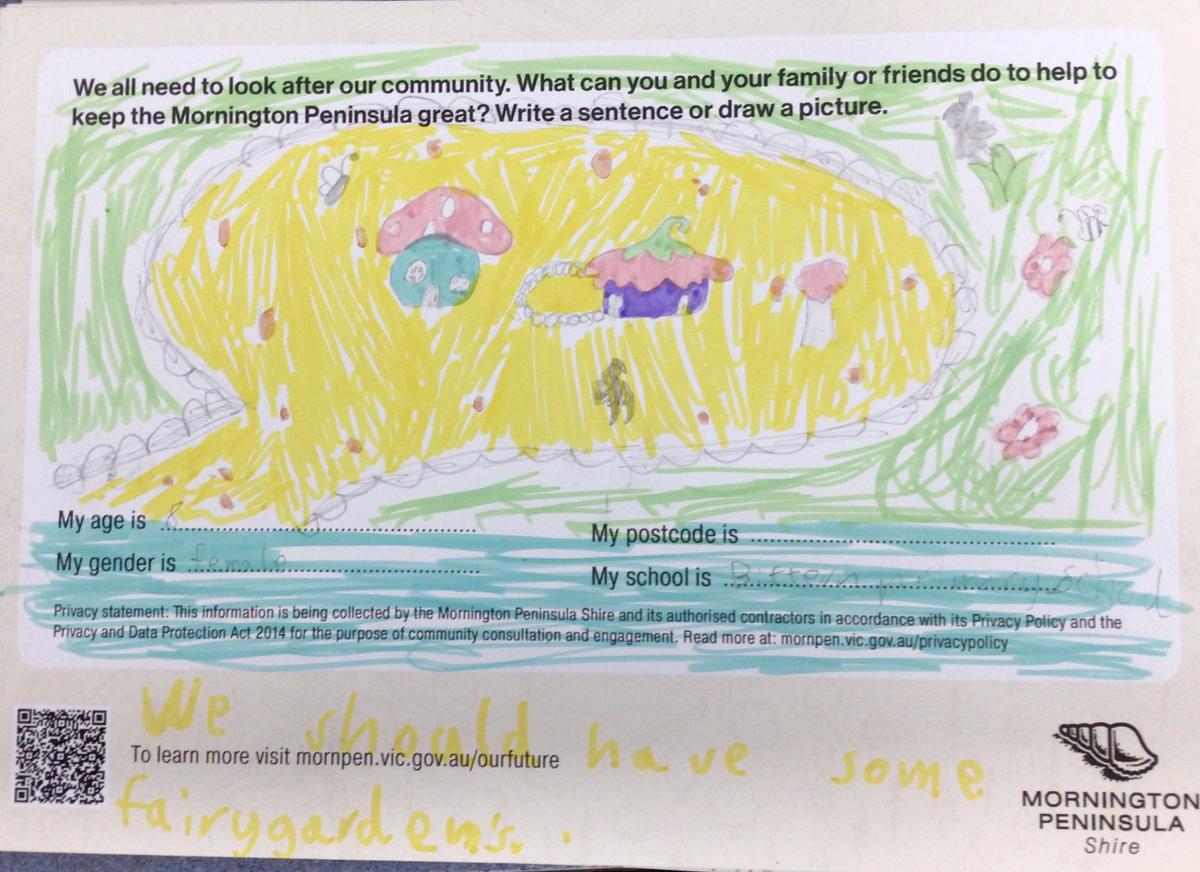 We all need to look after our community. What can you and your family or friends do to help to
keep the Mornington Peninsula great? Write a sentence or draw a picture.
My age is 8
My postcode is
My gender is female
My school is Bittern primary School
Privacy statement: This information is being collected by the Mornington Peninsula Shire and its authorised contractors in accordance with its Privacy Policy and the
Privacy and Data Protection Act 2014 for the purpose of community consultation and engagement. Read more at: mornpen.vic.gov.au/privacypolicy
We should have some
To learn more visit mornpen.vic.gov.au/ourfuture
fairygarden's.
MORNINGTON
PENINSULA
Shire